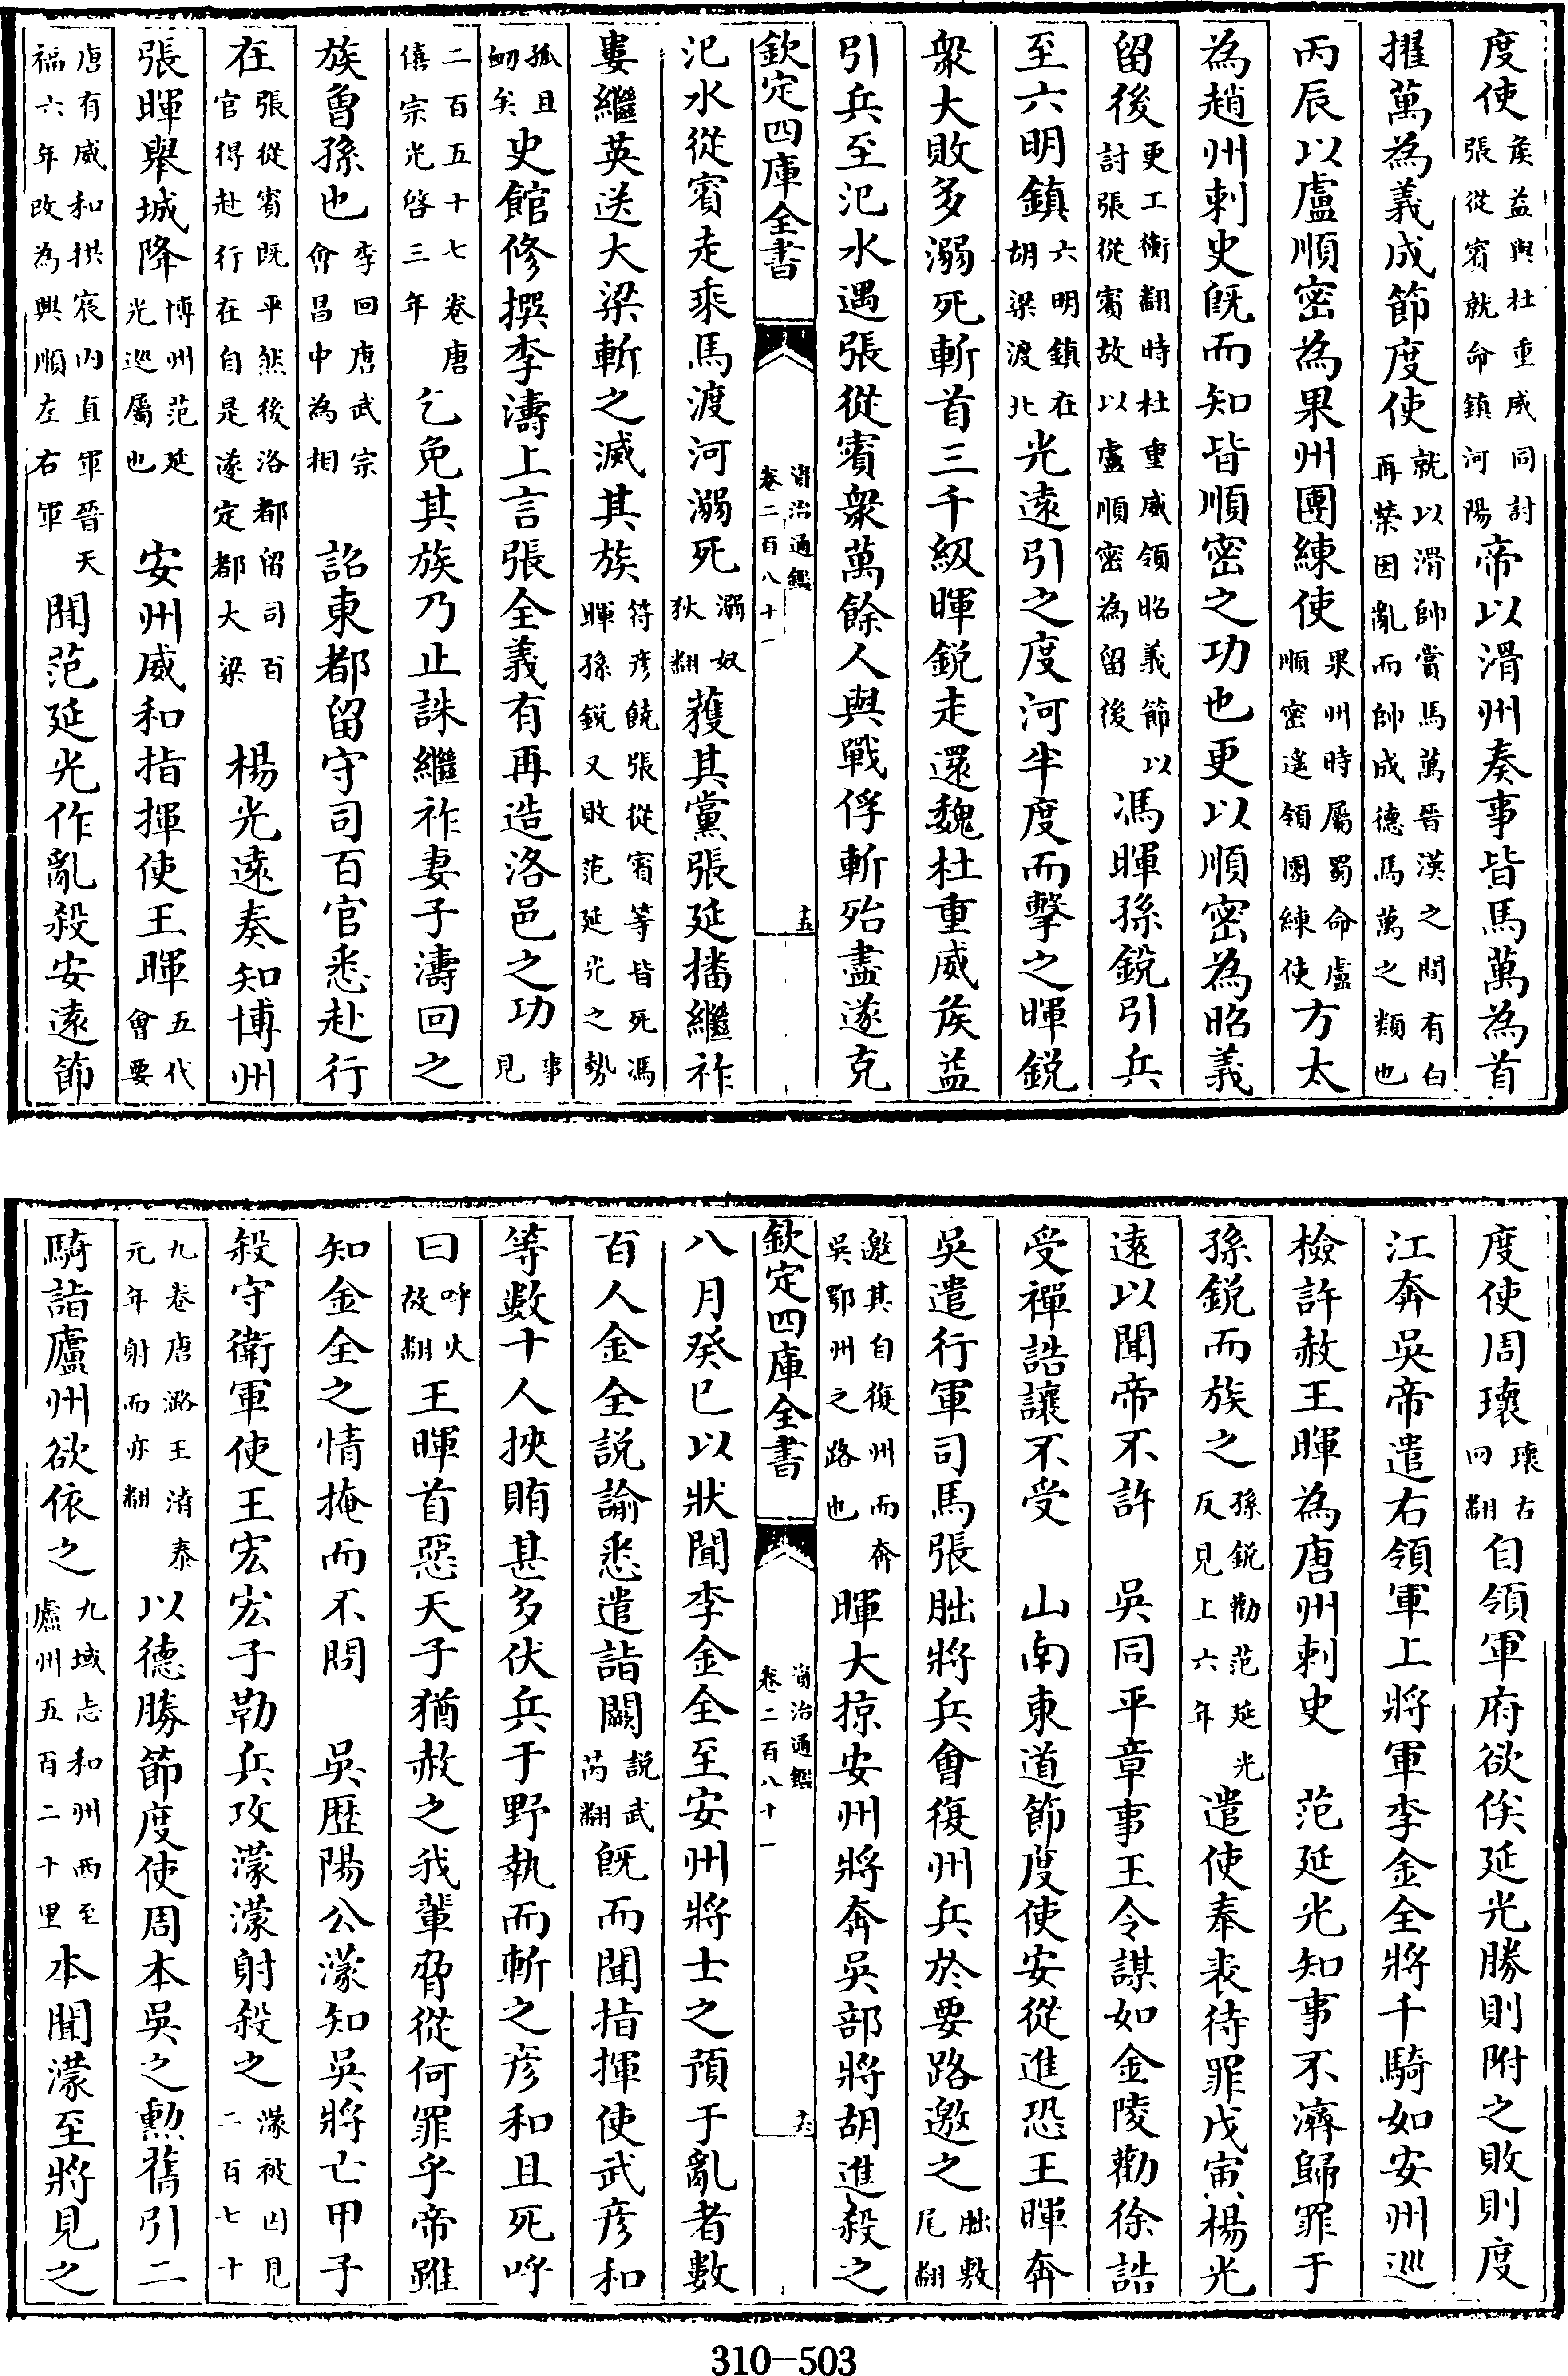 度使侯益與杜重威同討張從賓就命鎮河陽帝以滑州奏事皆馬萬為首
擢萬為義成節度使就以滑帥賞馬萬晉漢之間有白再榮因亂而帥成德馬萬之類也
丙辰以盧順密為果州團練使果州時屬蜀命盧順密遙領團練使方太
為趙州刺史既而知皆順密之功也更以順密為昭義
留後更工衡翻時杜重威領昭義節以討張從賓故以盧順密為留後 馮暉孫銳引兵
至六明鎮六明鎮在胡梁渡北光遠引之度河半度而擊之暉銳
衆大敗多溺死斬首三千級暉銳走還魏杜重威侯益
引兵至汜水遇張從賓衆萬餘人與戰俘斬殆盡遂克
欽定四庫全書 資治通鑑卷二百八十一 十五
汜水從賓走乘馬渡河溺死溺奴狄翻獲其黨張延播繼祚
婁繼英送大梁斬之滅其族符彦饒張從賓等皆死馮暉孫銳又敗范延光之勢
孤且衂矣史館修撰李濤上言張全義有再造洛邑之功事見
二百五十七卷唐僖宗光啓三年乞免其族乃止誅繼祚妻子濤回之
族曾孫也李回唐武宗會昌中為相 詔東都留守司百官悉赴行
在張從賓既平然後洛都留司百官得赴行在自是遂定都大梁 楊光遠奏知博州
張暉舉城降博州范延光巡屬也 安州威和指揮使王暉五代會要
唐有威和拱宸内直軍晉天福六年改為興順左右軍聞范延光作亂殺安遠節
度使周瓌瓌古回翻自領軍府欲俟延光勝則附之敗則度
江奔吳帝遣右領軍上將軍李金全將千騎如安州巡
檢許赦王暉為唐州刺史 范延光知事不濟歸罪于
孫銳而族之孫銳勸范延光反見上六年遣使奉表待罪戊寅楊光
遠以聞帝不許 吳同平章事王令謀如金陵勸徐誥
受禪誥讓不受 山南東道節度使安從進恐王暉奔
吳遣行軍司馬張朏將兵會復州兵於要路邀之朏敷尾翻
邀其自復州而奔吳鄂州之路也暉大掠安州將奔吳部將胡進殺之
欽定四庫全書 資治通鑑卷二百八十一 十六
八月癸巳以狀聞李金全至安州將士之預于亂者數
百人金全説諭悉遣詣闕説武芮翻既而聞指揮使武彦和
等數十人挾賄甚多伏兵于野執而斬之彦和且死呼
曰呼火故翻王暉首惡天子猶赦之我輩脅從何罪乎帝雖
知金全之情掩而不問 吳歷陽公濛知吳將亡甲子
殺守衛軍使王宏宏子勒兵攻濛濛射殺之濛被囚見二百七十
九卷唐潞王清泰元年射而亦翻以德勝節度使周本吳之勲舊引二
騎詣廬州欲依之九域志和州西至廬州五百二十里本聞濛至將見之
310-503